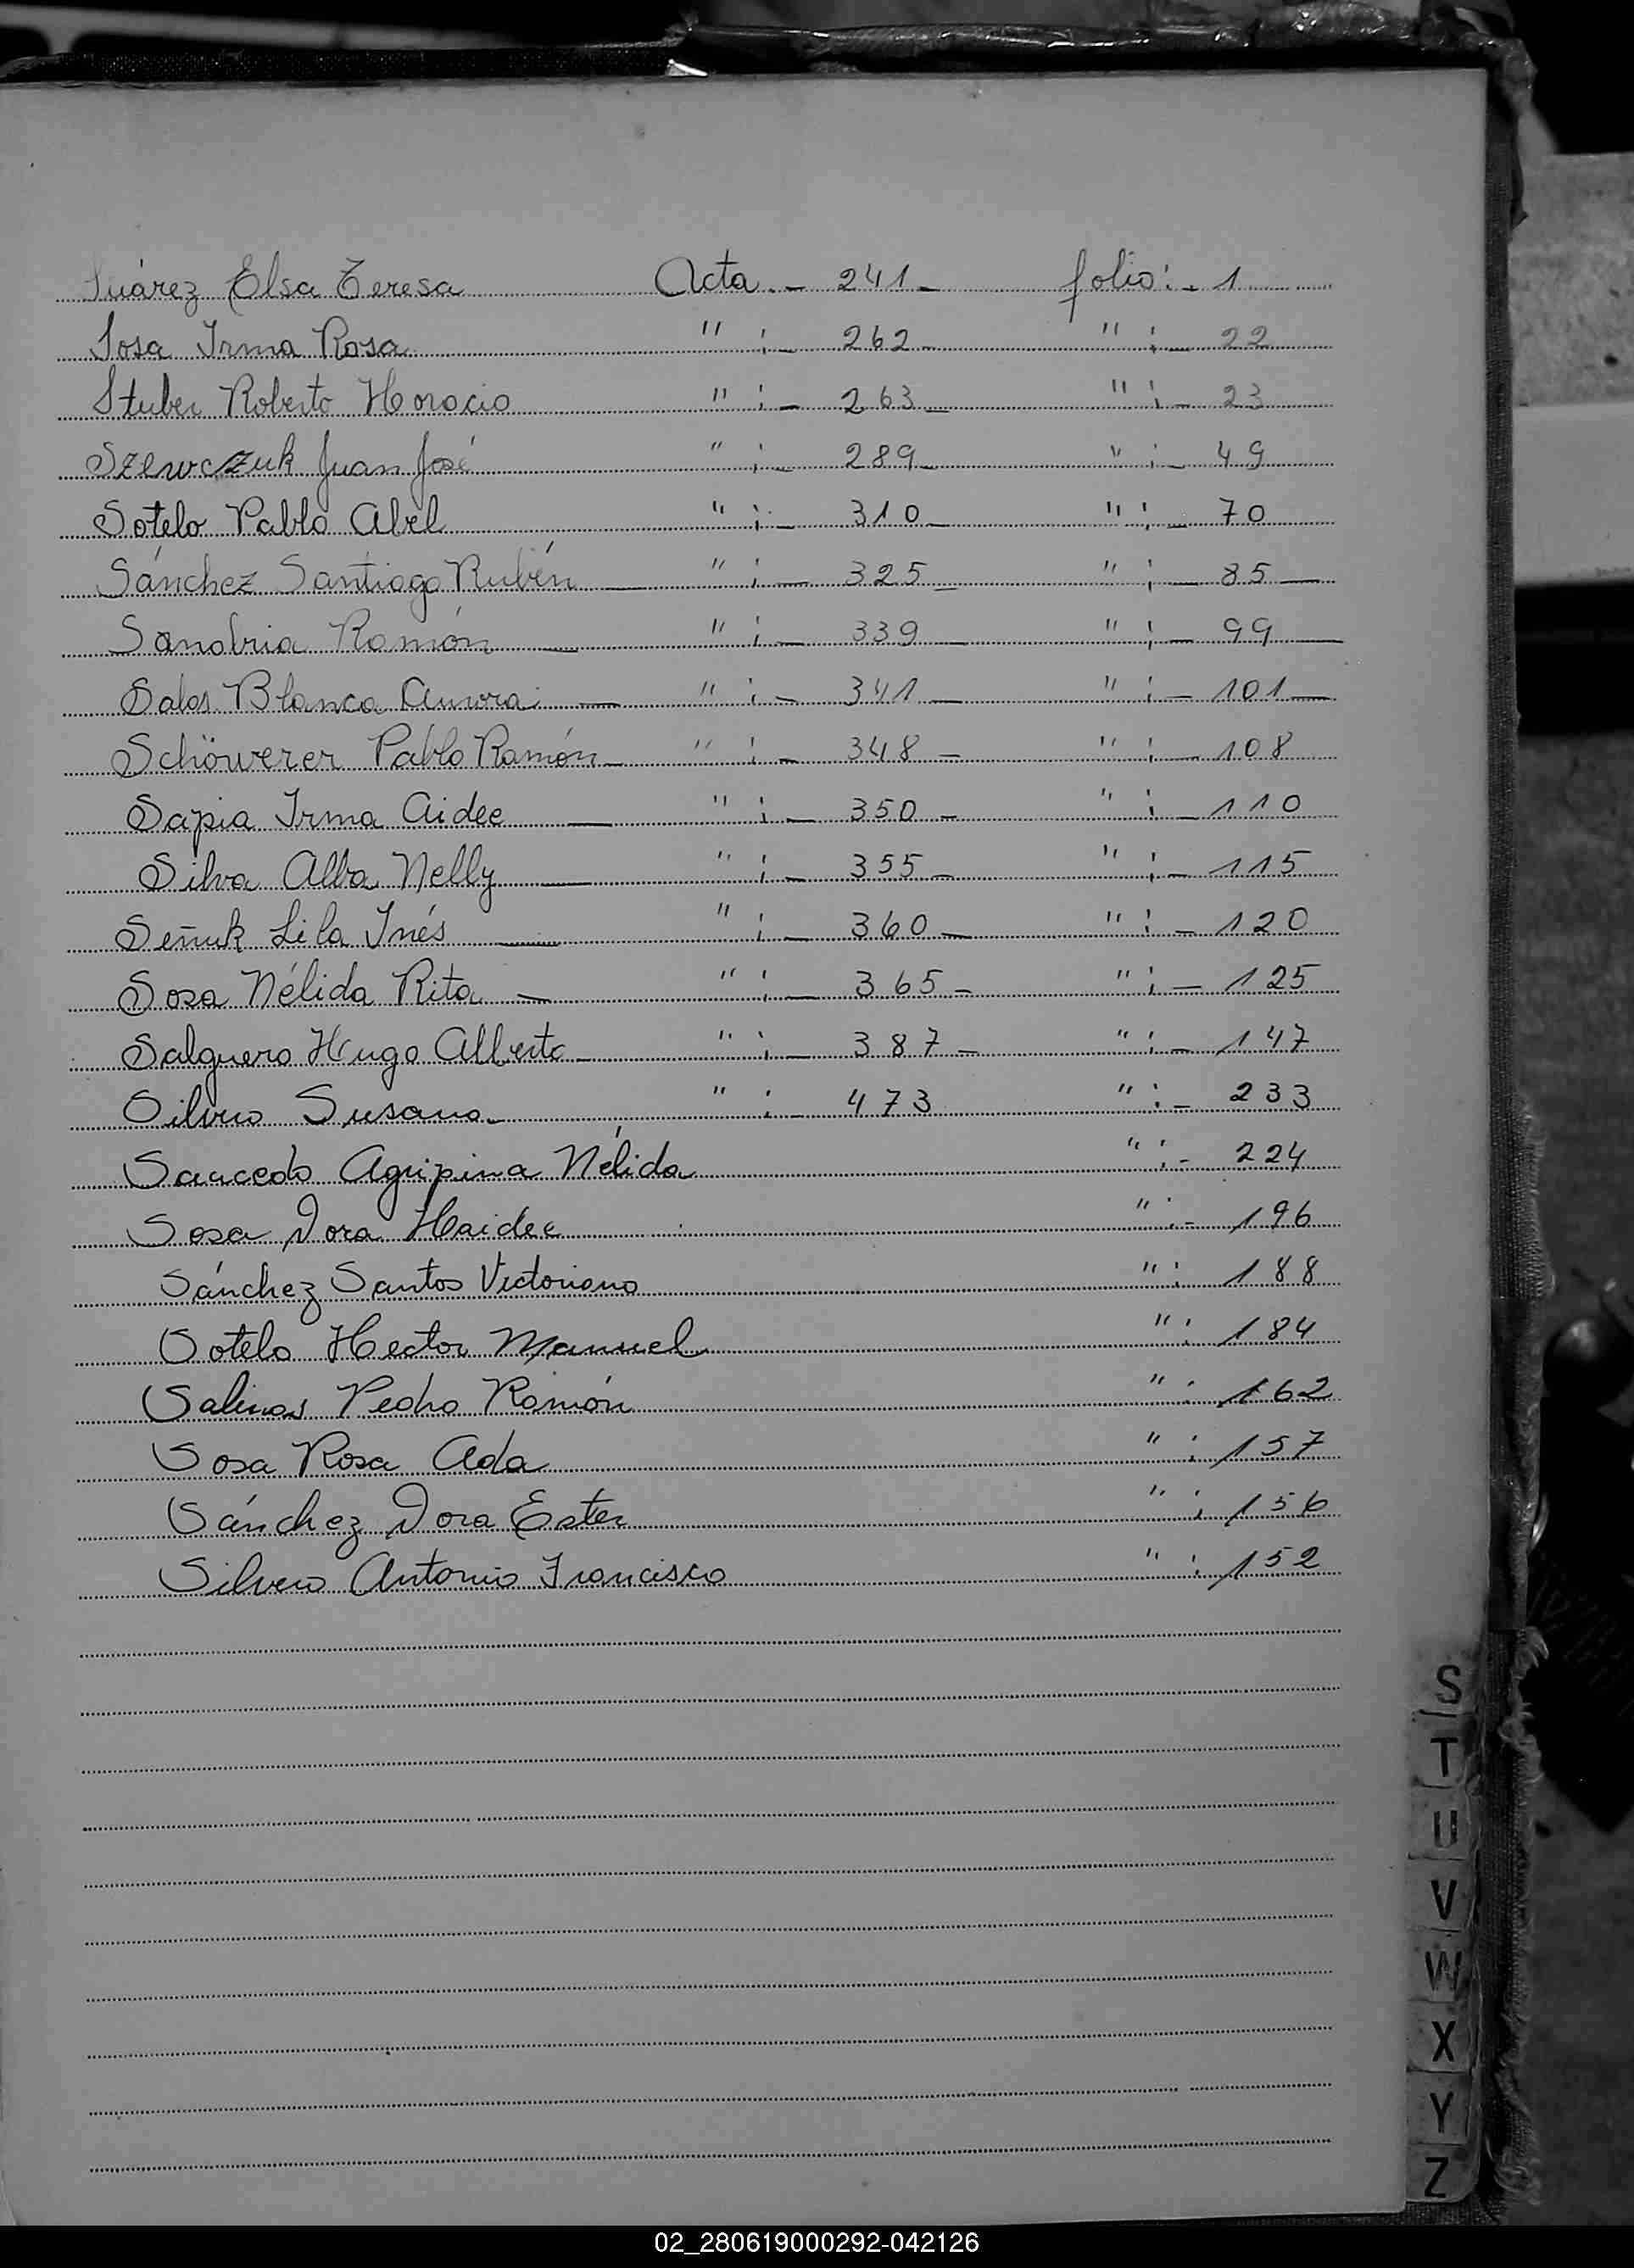 Suárez Elsa Teresa Acta.- 241- folio:- 1
Sosa Irma Rosa " :- 262- " :- 22
Stuber Roberto Horacio " :- 263- " :- 23
Szewczuk Juan José " :- 289- " :- 49
Sotelo Pablo Abel " :- 310- " :- 70
Sánchez Santiago Rubén - " :- 325- " :- 85-
Sanabria Ramón - " :- 339- " :- 99-
Salas Blanca Aurora - " :- 341- " :- 101-
Schöwerer Pablo Ramón- " :- 348- " :- 108
Sapia Irma Aidee - " :- 350- " :- 110
Silva Alba Nelly - " :- 355- " :- 115
Señuk Lila Inés - " :- 360- " :- 120
Sosa Nélida Rita - " :- 365- " :- 125
Salguero Hugo Alberto- " :- 387- " :- 147
Silvero Susana- " :- 473 " :- 233
Saucedo Agripina Nélida " :- 224
Sosa Dora Haidee " :- 196
Sánchez Santos Victoriano " : 188
Sotelo Hector Manuel " : 184
Salinas Pedro Ramón " : 162
Sosa Rosa Ada " : 157
Sánchez Dora Ester " : 156
Silvero Antonio Francisco " : 152
S
T
U
V
W
X
Y
Z
02_280619000292-042126